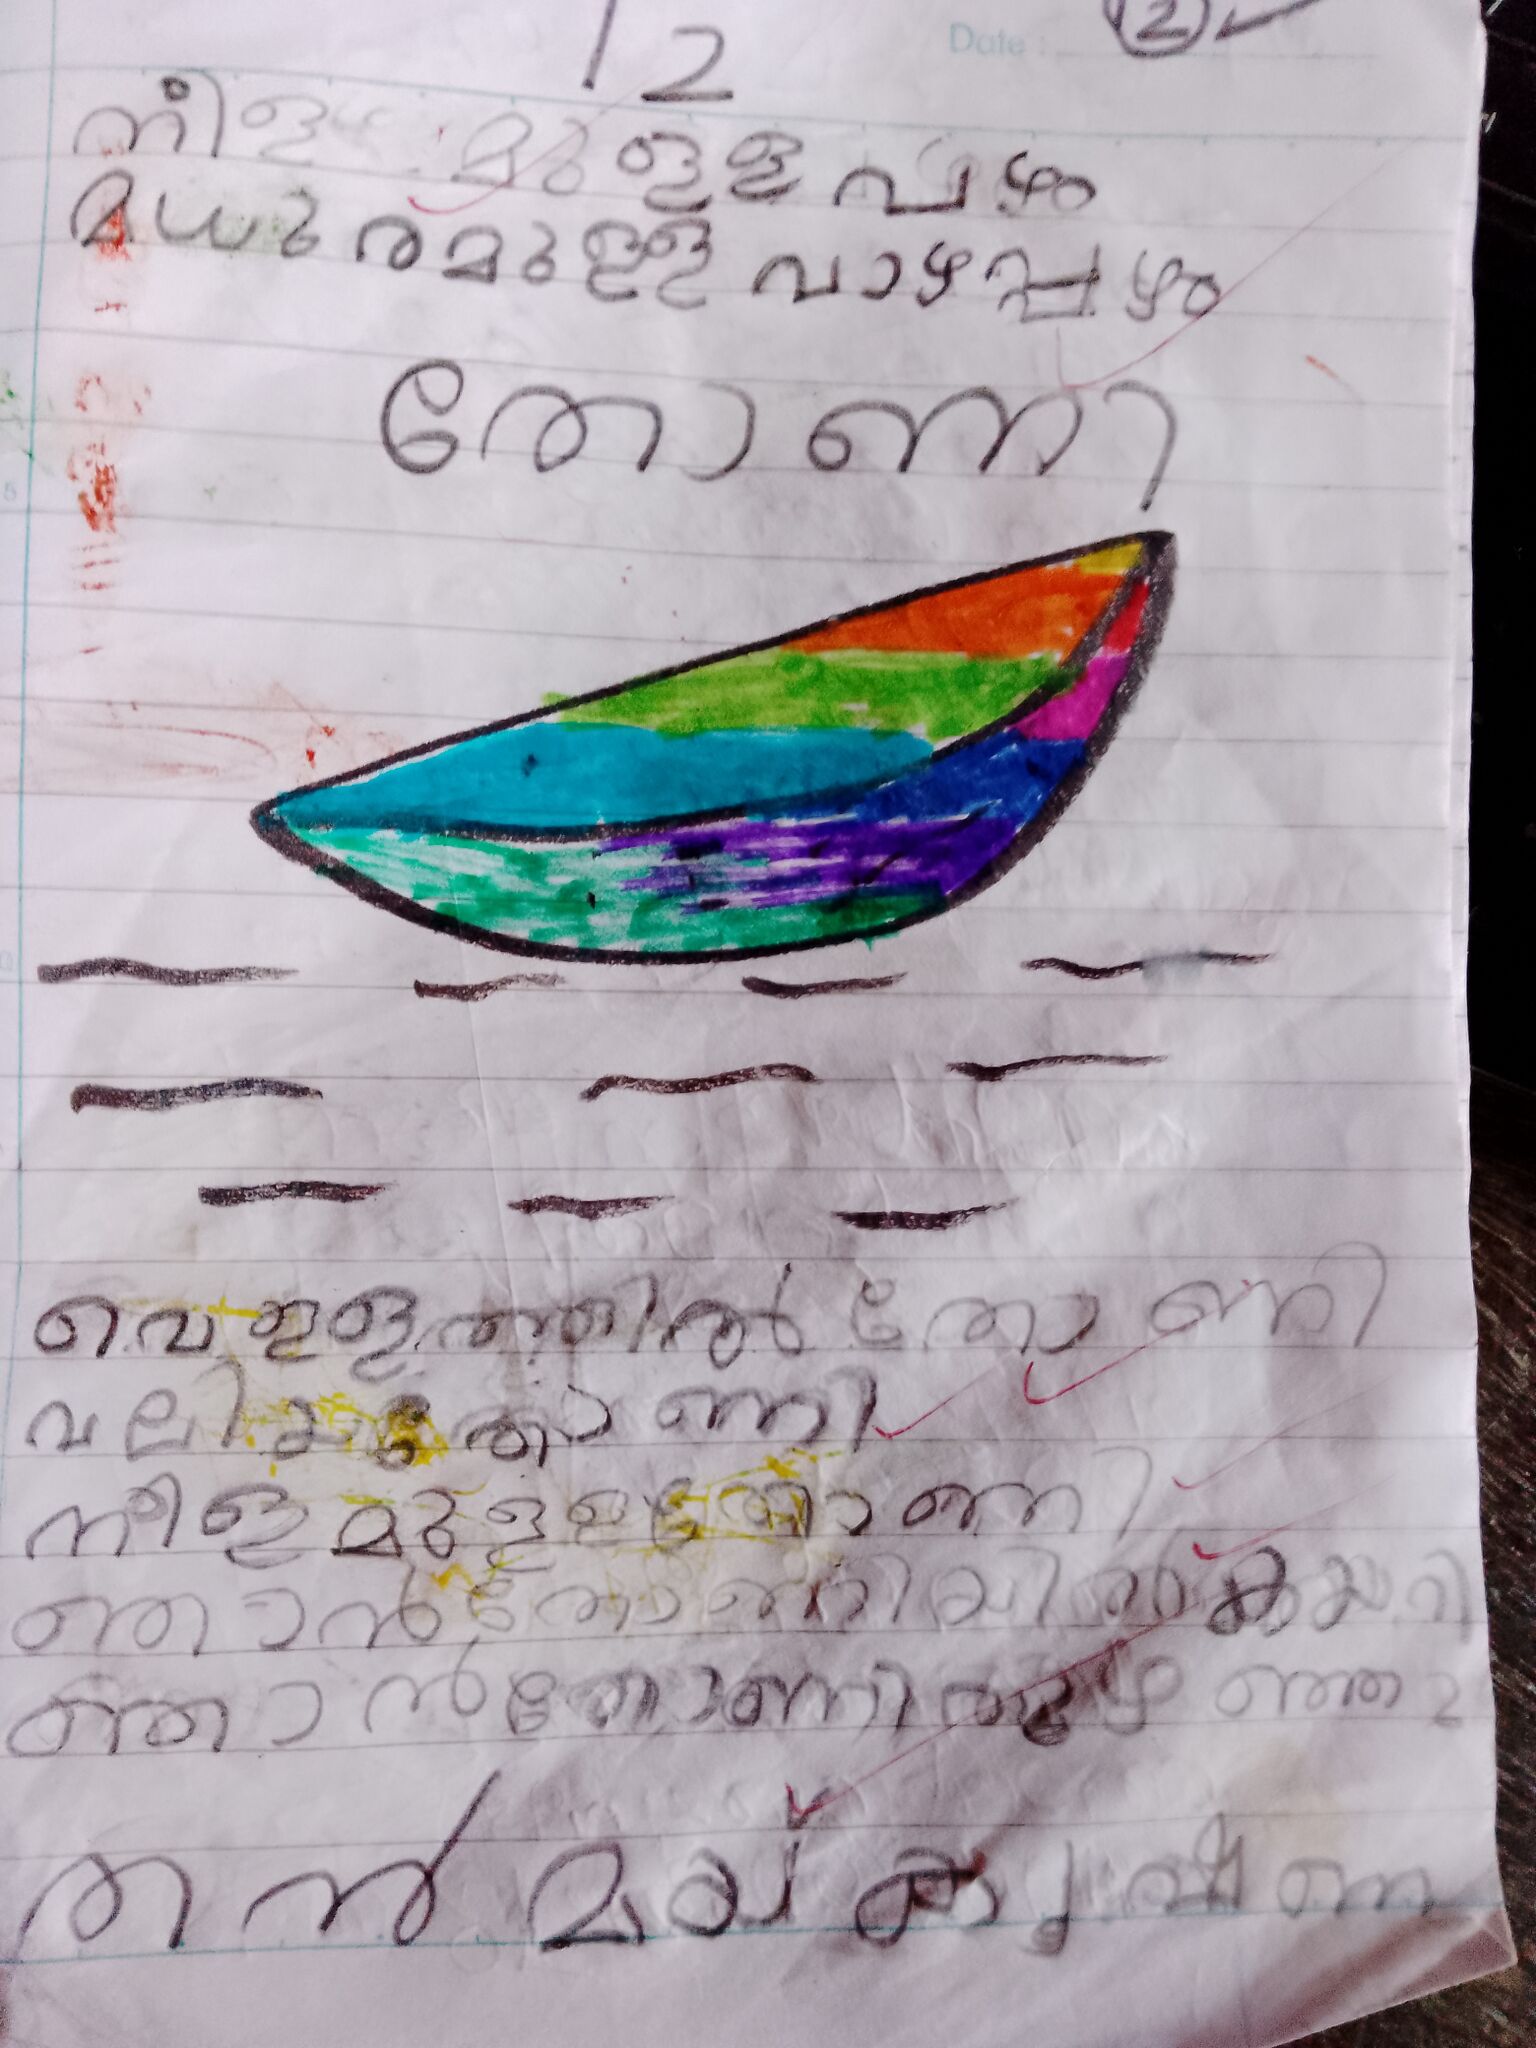 12
Date :
2
നീളമുള്ള പഴം
മധുരമുള്ള വാഴപ്പഴം
തോണി
വെള്ളത്തിൽ തോണി
വലിയ തോണി
നീളമുള്ള തോണി
ഞാൻ തോണിയിൽ കയറി
ഞാൻ തോണി തുഴഞ്ഞു
തൻമയ് കൃഷ്ണ